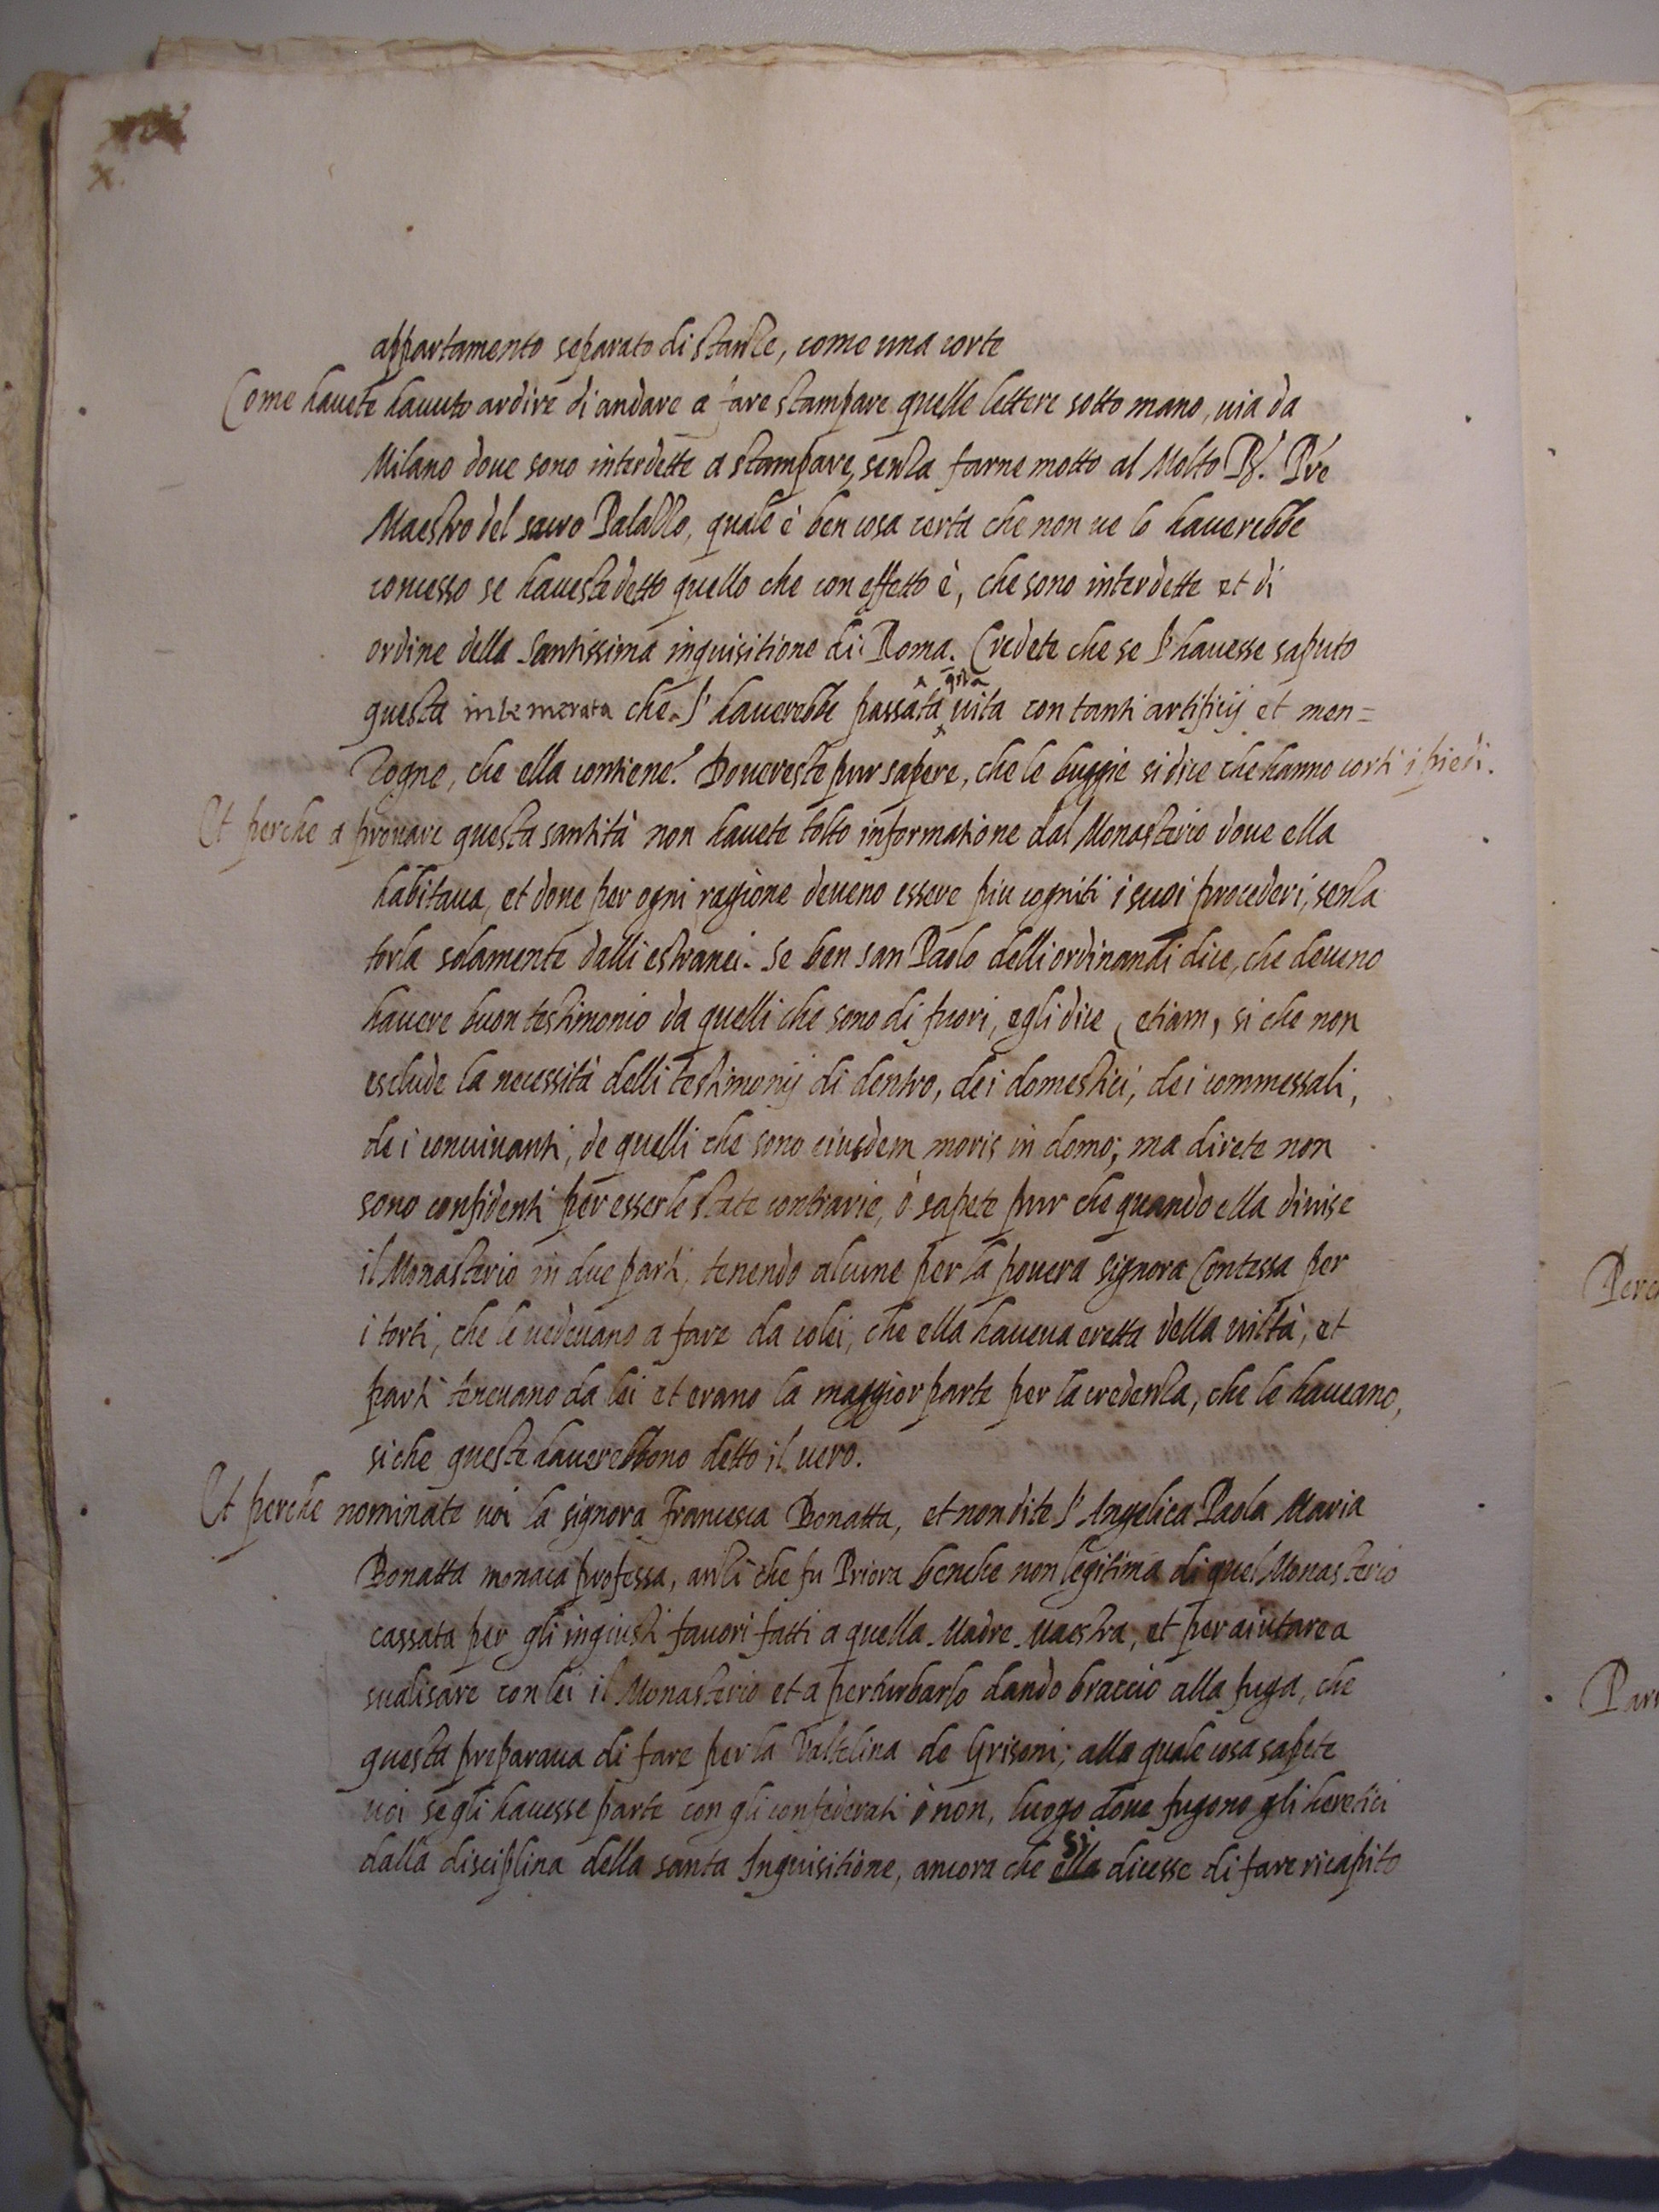 appartamento separato di stanze, come una corte
Come havete havuto ardire di andare a fare stampare quelle lettere sotto mano, via da
Milano dove sono interdette a stampare, senza farne motto al Molto R.do P̃re
Maestro del sacro Palazzo, quale è ben cosa certa che non ve lo haverebbe
concesso se haveste detto quello che con effetto è, che sono interdette et di
ordine della Santissima inquisitione di Roma. Credete che se l'havesse saputo
questa intemerata che l'haverebbe passata vita con tanti artificij et men=
zogne, che ella contiene? Dovereste pur sapere, che le buggie si dice che hanno corti i piedi.
Et perche a provare questa santità non havete tolto informatione dal Monasterio dove ella
habitava, et dove per ogni ragione deveno essere piu cogniti i suoi procederi, senza
torla solamente dalli estranei. Se ben san Paolo delli ordinandi dice, che deveno
havere buon testimonio da quelli che sono di fuori, egli dice, etiam, si che non
esclude la necessità delli testimonij di dentro, de i domestici, de i commessali,
de i convivanti, de quelli che sono eiusdem moris in domo; ma direte non
sono confidenti per esserle state contrarie, ò sapete pur che quando ella divise
il Monasterio in due parti, tenendo alcune per la povera signora Contessa per
i torti, che le vedevano a fare da colei, che ella haveva eretta della viltà, et
parti tenevano da lei et erano la maggior parte per la credenza, che le haveano,
si che queste haverebbono detto il vero.
Et perche nominate voi la signora Francesca Bonatta, et non dite l'Angelica Paola Maria
Bonatta monaca professa, anzi che fu Priora benche non legitima di quel Monasterio
cassata per gli ingiusti favori fatti a quella Madre Maestra, et per aiutare a
sualisare con lei il Monasterio et a perturbarlo dando braccio alla fuga, che
questa preparava di fare per la Valtelina de Grisoni; alla quale cosa sapete
voi se gli havesse parte con gli confederati ò non, luogo dove fugono gli heretici
dalla disciplina della santa Inquisitione, ancora che si dicesse di fare ricapito
Perc
Par